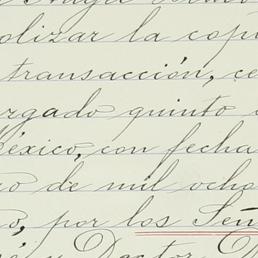 olizar la copi
transacción, ce
rgado quinto
México, con fecha
o de mil ocho
o, por los Señ
y Doctor D